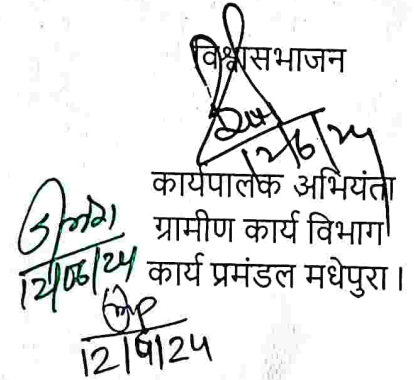 विश्वासभाजन
12/6/24
कार्यपालक अभियंता
ग्रामीण कार्य विभाग
कार्य प्रमंडल मधेपुरा।
12/06/24
12/9/24